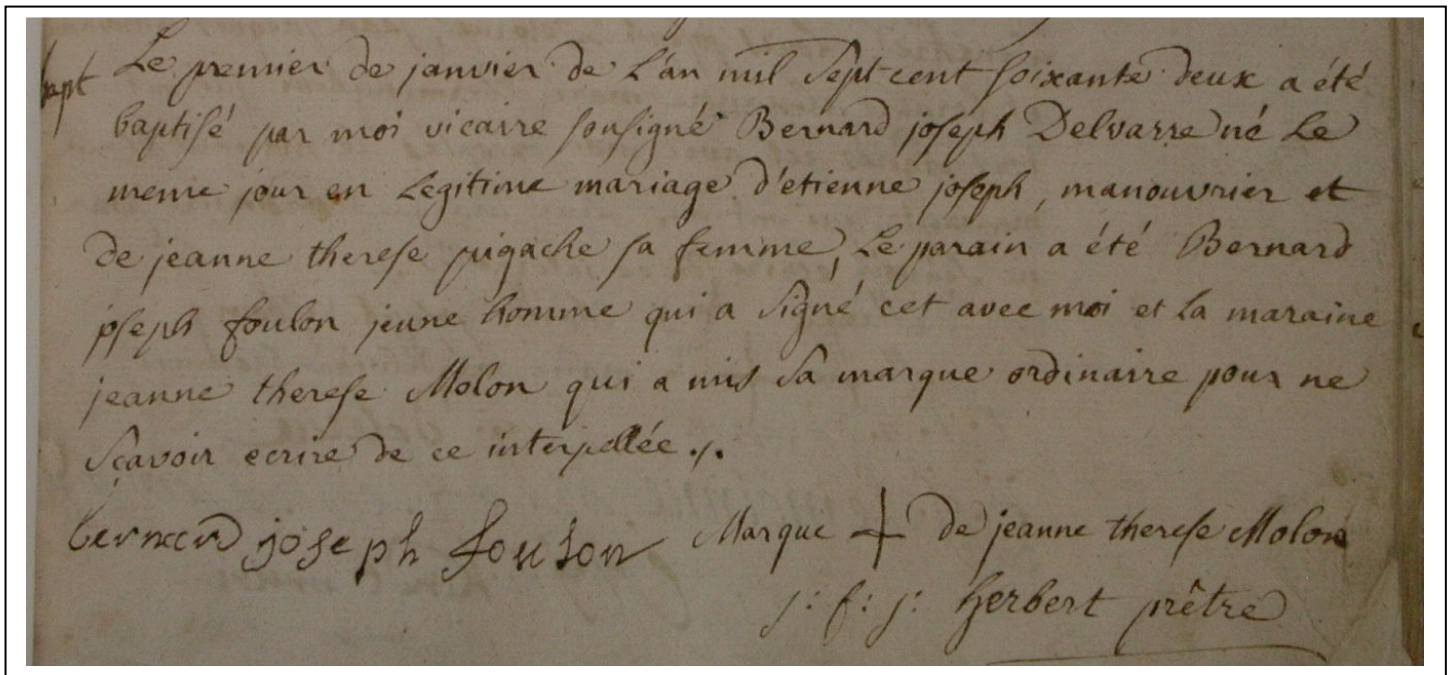 bapt Le premier de janvier de L'an mil sept cent soixante deux a été
baptisé par moi vicaire sousigné Bernard joseph Delvarre né Le
meme jour en Legitime mariage d'etienne joseph, manouvrier et
de jeanne therese pigache sa femme, Le parain a été Bernard
joseph foulon jeune homme qui a signé cet avec moi et la maraine
jeanne therese Molon qui a mis sa marque ordinaire pour ne
scavoir ecrire de ce interpellée ./.
bernard joseph foulon Marque + de jeanne therese Molon
j: f: j: herbert prêtre